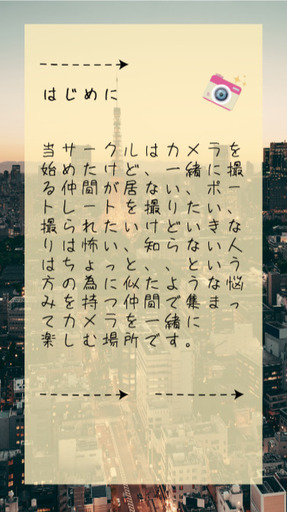 はじめに
当サークルはカメラを
始めたけど、一緒に撮
る仲間が居ない、ポー
トレートを撮りたい、
撮られたいけどいきな
りは怖い、知らない人
はちょっと、、という
方の為に似たような悩
みを持つ仲間で集まっ
てカメラを一緒に
楽しむ場所です。